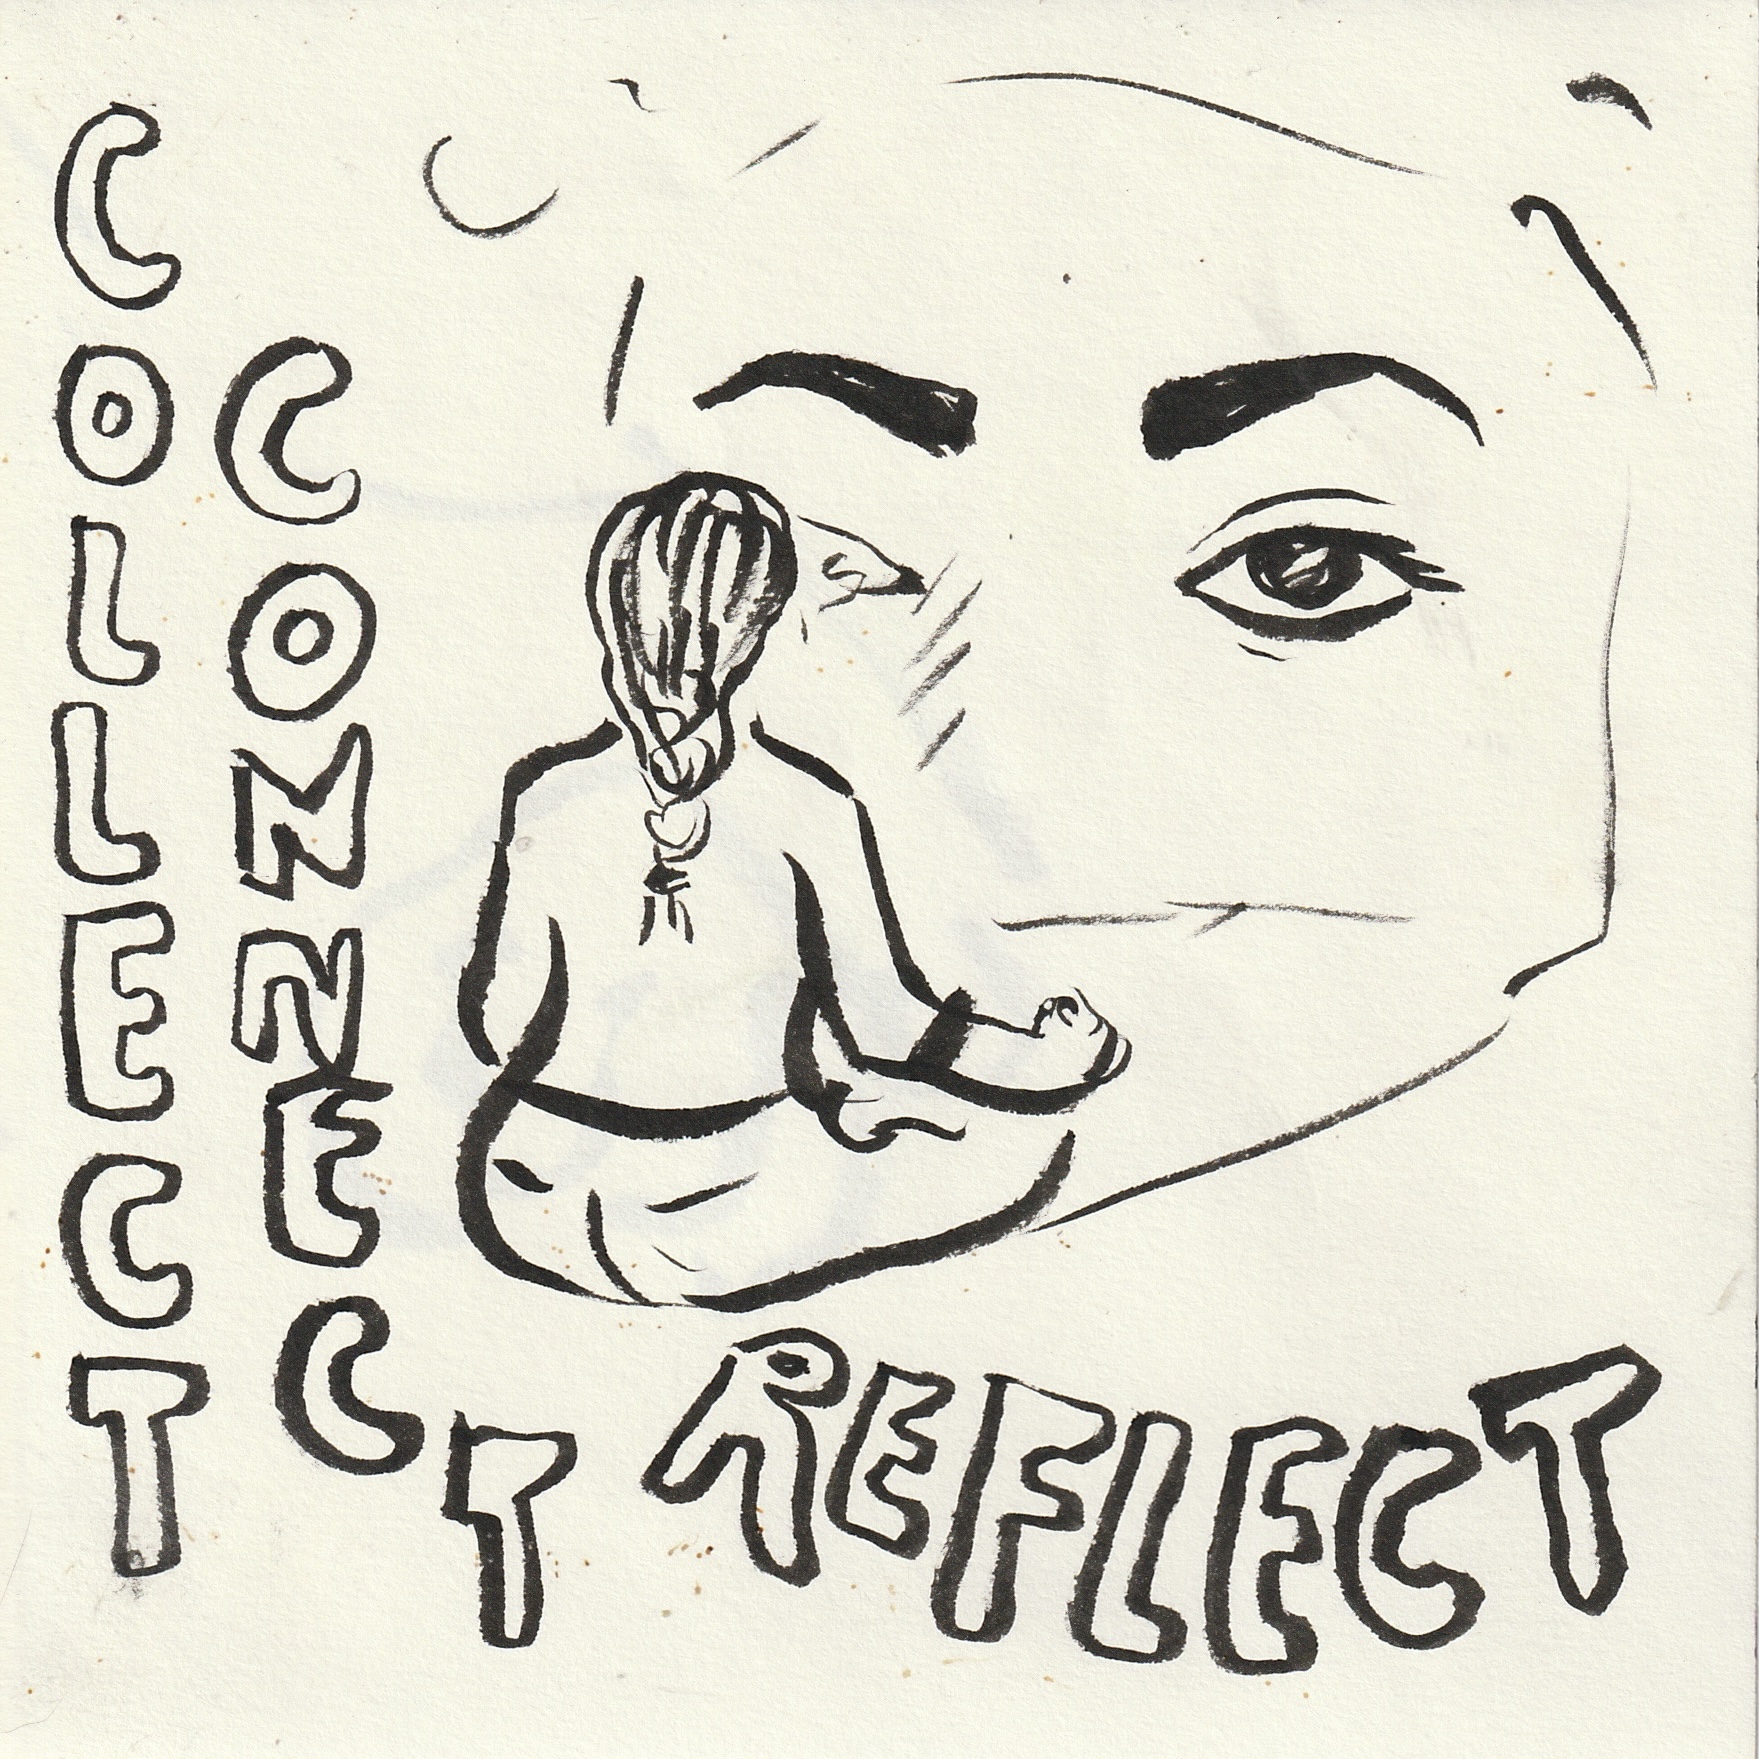 COLLECT
CONNECT
REFLECT